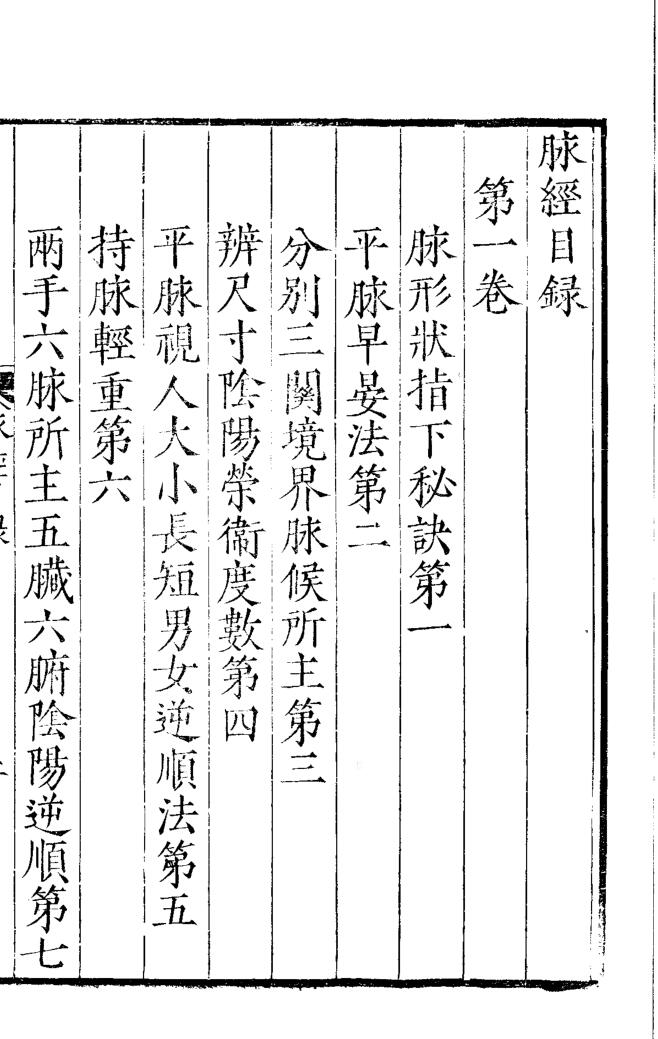 脉經目録
第一卷
脉形狀指下秘訣第一
平脉早晏法第二
分别三関境界脉候所主第三
辨尺寸陰陽榮衞度數第四
平脉視人大小長短男女逆順法第五
持脉輕重第六
兩手六脉所主五臟六腑陰陽逆順第七